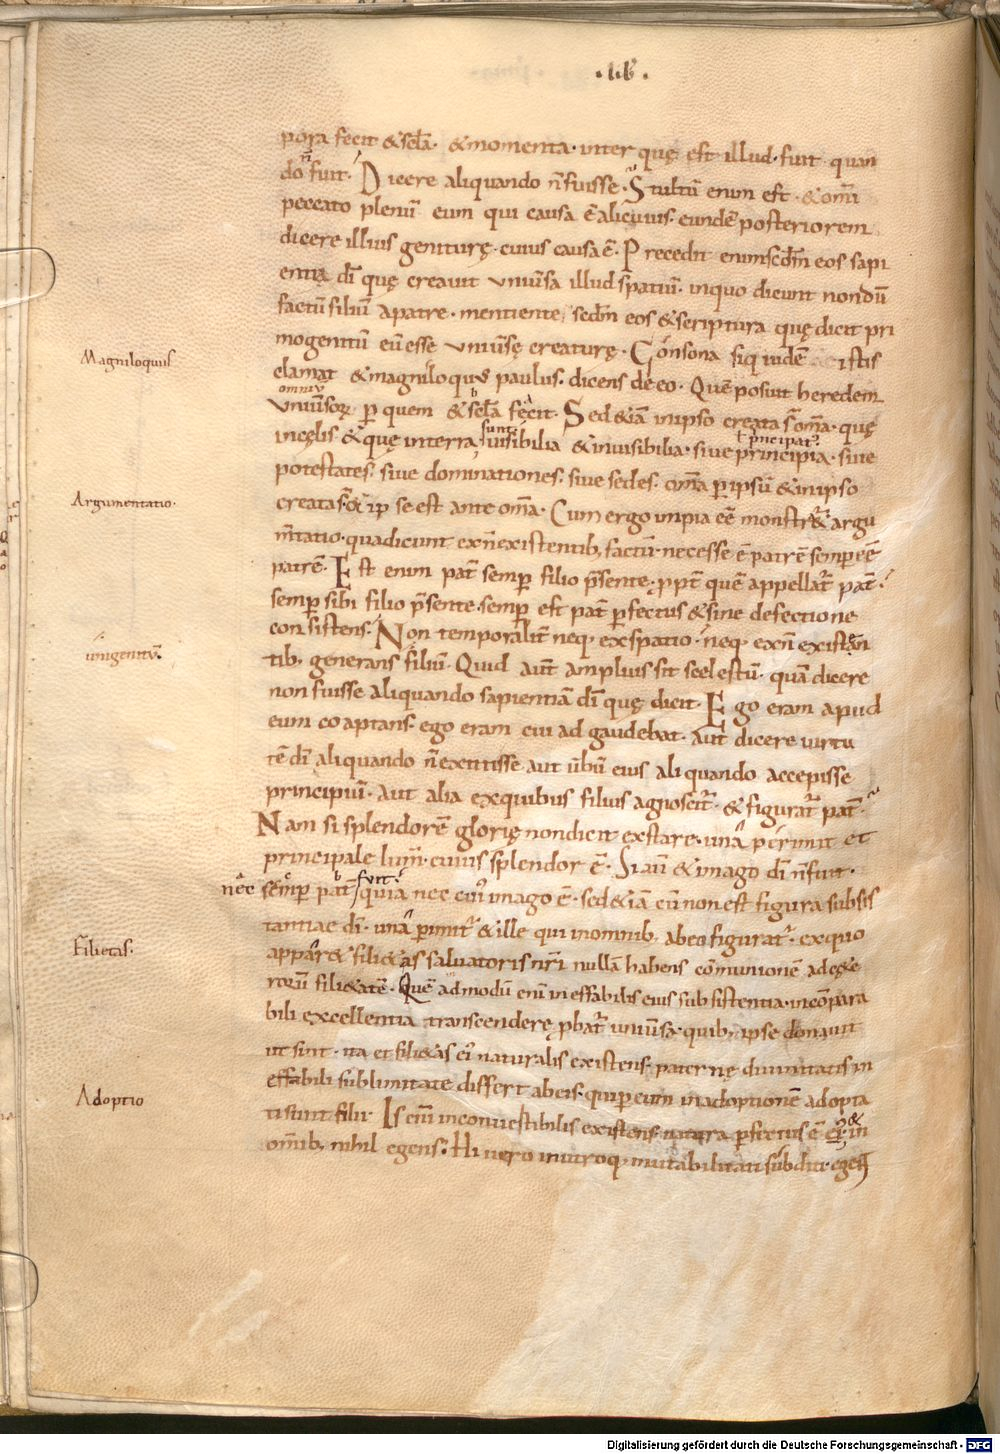 ·lib·
pora fecit &scła· &momenta· inter quę est illud· fuit quan
do n̄ fuit· Dicere aliquando n̄ fuisse· Stultū enim est· &om̄i
peccato plenū eum qui causa ē alicuius· eundē posteriorem
dicere illius geniturę· cuius causa ē· Precedit enim scd̄m eos sapi
entia dī quę creauit uniūsa illud spatiū· inquo dicunt nondū
factū filiū apatre· mentiente, scd̄m eos &scriptura quę dicit pri
mogenitū eū esse uniūsę creaturę· Consona siquidē istis
Magniloquus
clamat &magniloquus paulus· dicens de eo· Quē posuit heredem
omniū
uniūsoꝝ ꝑ quem &scła fecit· Sed &iā inipso creata s̄ om̄a· quę
incęlis &quę interra, sunt uisibilia &inuisibilia· siue principia· siue
ł principat᾿
potestates· siue dominationes· siue sedes· om̄a ꝑ ipsū &inipso
Argumentatio·
creata s̄· &ip̄se est ante om̄a· Cum ergo impia eē monstr&ur argu
m̄tatio· quadicunt exn̄existentib; factū· necesse ē patrē semper eē
patrē· Est enim pat̄ semꝑ filio p̄sente· ꝓpt̄ quē appellat̄ pat̄·
semꝑ sibi filio p̄sente· semꝑ est pat̄ ꝑfectus &sine defectione
consistens· Non temporalit̄ neq; exspatio· neq; exn̄ existen
unigenitū·
tib; generans filiū· Quid aūt amplius sit scelestū· quā dicere
non fuisse aliquando sapientiā dī quę dicit· Ego eram apud
eum coaptans· ego eram cui adgaudebat· aut dicere uirtu
tē dī aliquando n̄ extitisse aut ūbū eius aliquando accepisse
principiū· aut alia exquibus filius agnoscit̄· &figurat̄ pat̄·
Nam si splendorē glorię nondicit exstare· unā perimit et
principale lum̄· cuius splendor ē· Si aū &imago dī n̄ fuit·
nec semper pat̄ fuit· quia nec ei᾿ imago ē· sed &iā eū nonest figura subsis
tantiae dī· unā ꝑimit̄ &ille qui inomnib; abeo figurat̄· exquo
Filietas·
appar& fili&as saluatoris nr̄i nullā habens cōmunionē adc&e
rorū fili&atē· Quē admodū enī ineffabilis eius subsistentia· incōpara
bili excellentia transcenderę ꝓbat̄ uniūsa· quib; ipse donauit
ut sint· ita et fili&as ei᾿ naturalis existens· paternę diuinitatis in
effabili sublimitate differt abeis· qui ꝑ eum inadoptionē adopta
Adoptio
ti sunt filii· Is enī inconuertibilis existens· natura ꝑfectus ē & in
om̄ib; nihil egens· Hi uero inutroq; mutabilitati subditi egent